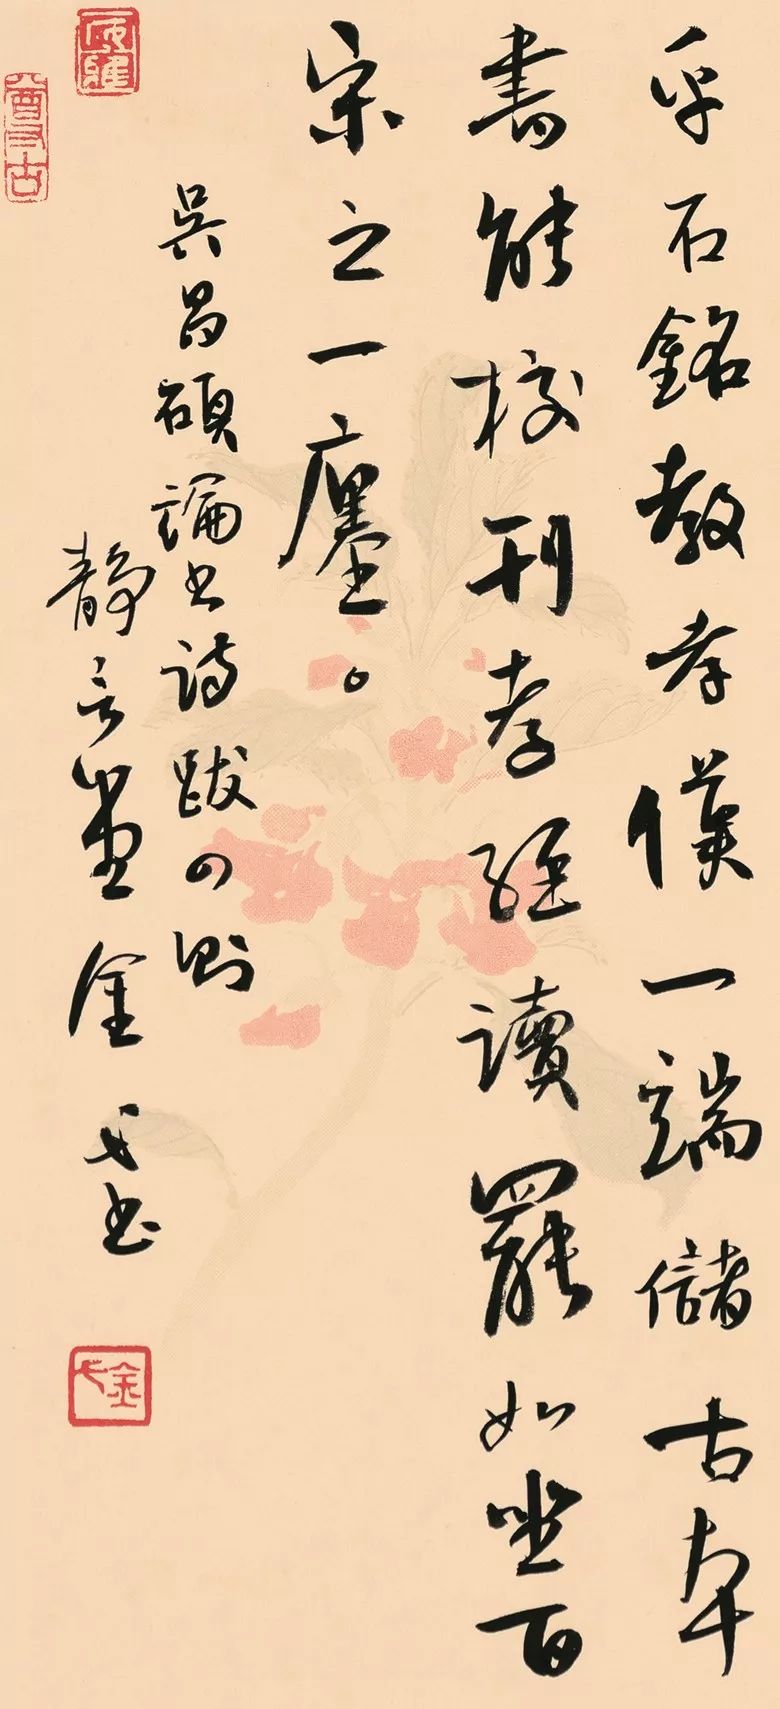 乎石銘教孝僅一端儲古本
書能校刊孝經讀罷如坐百
宋之一廛。
吳昌碩論書詩跋四則
靜言堂金书